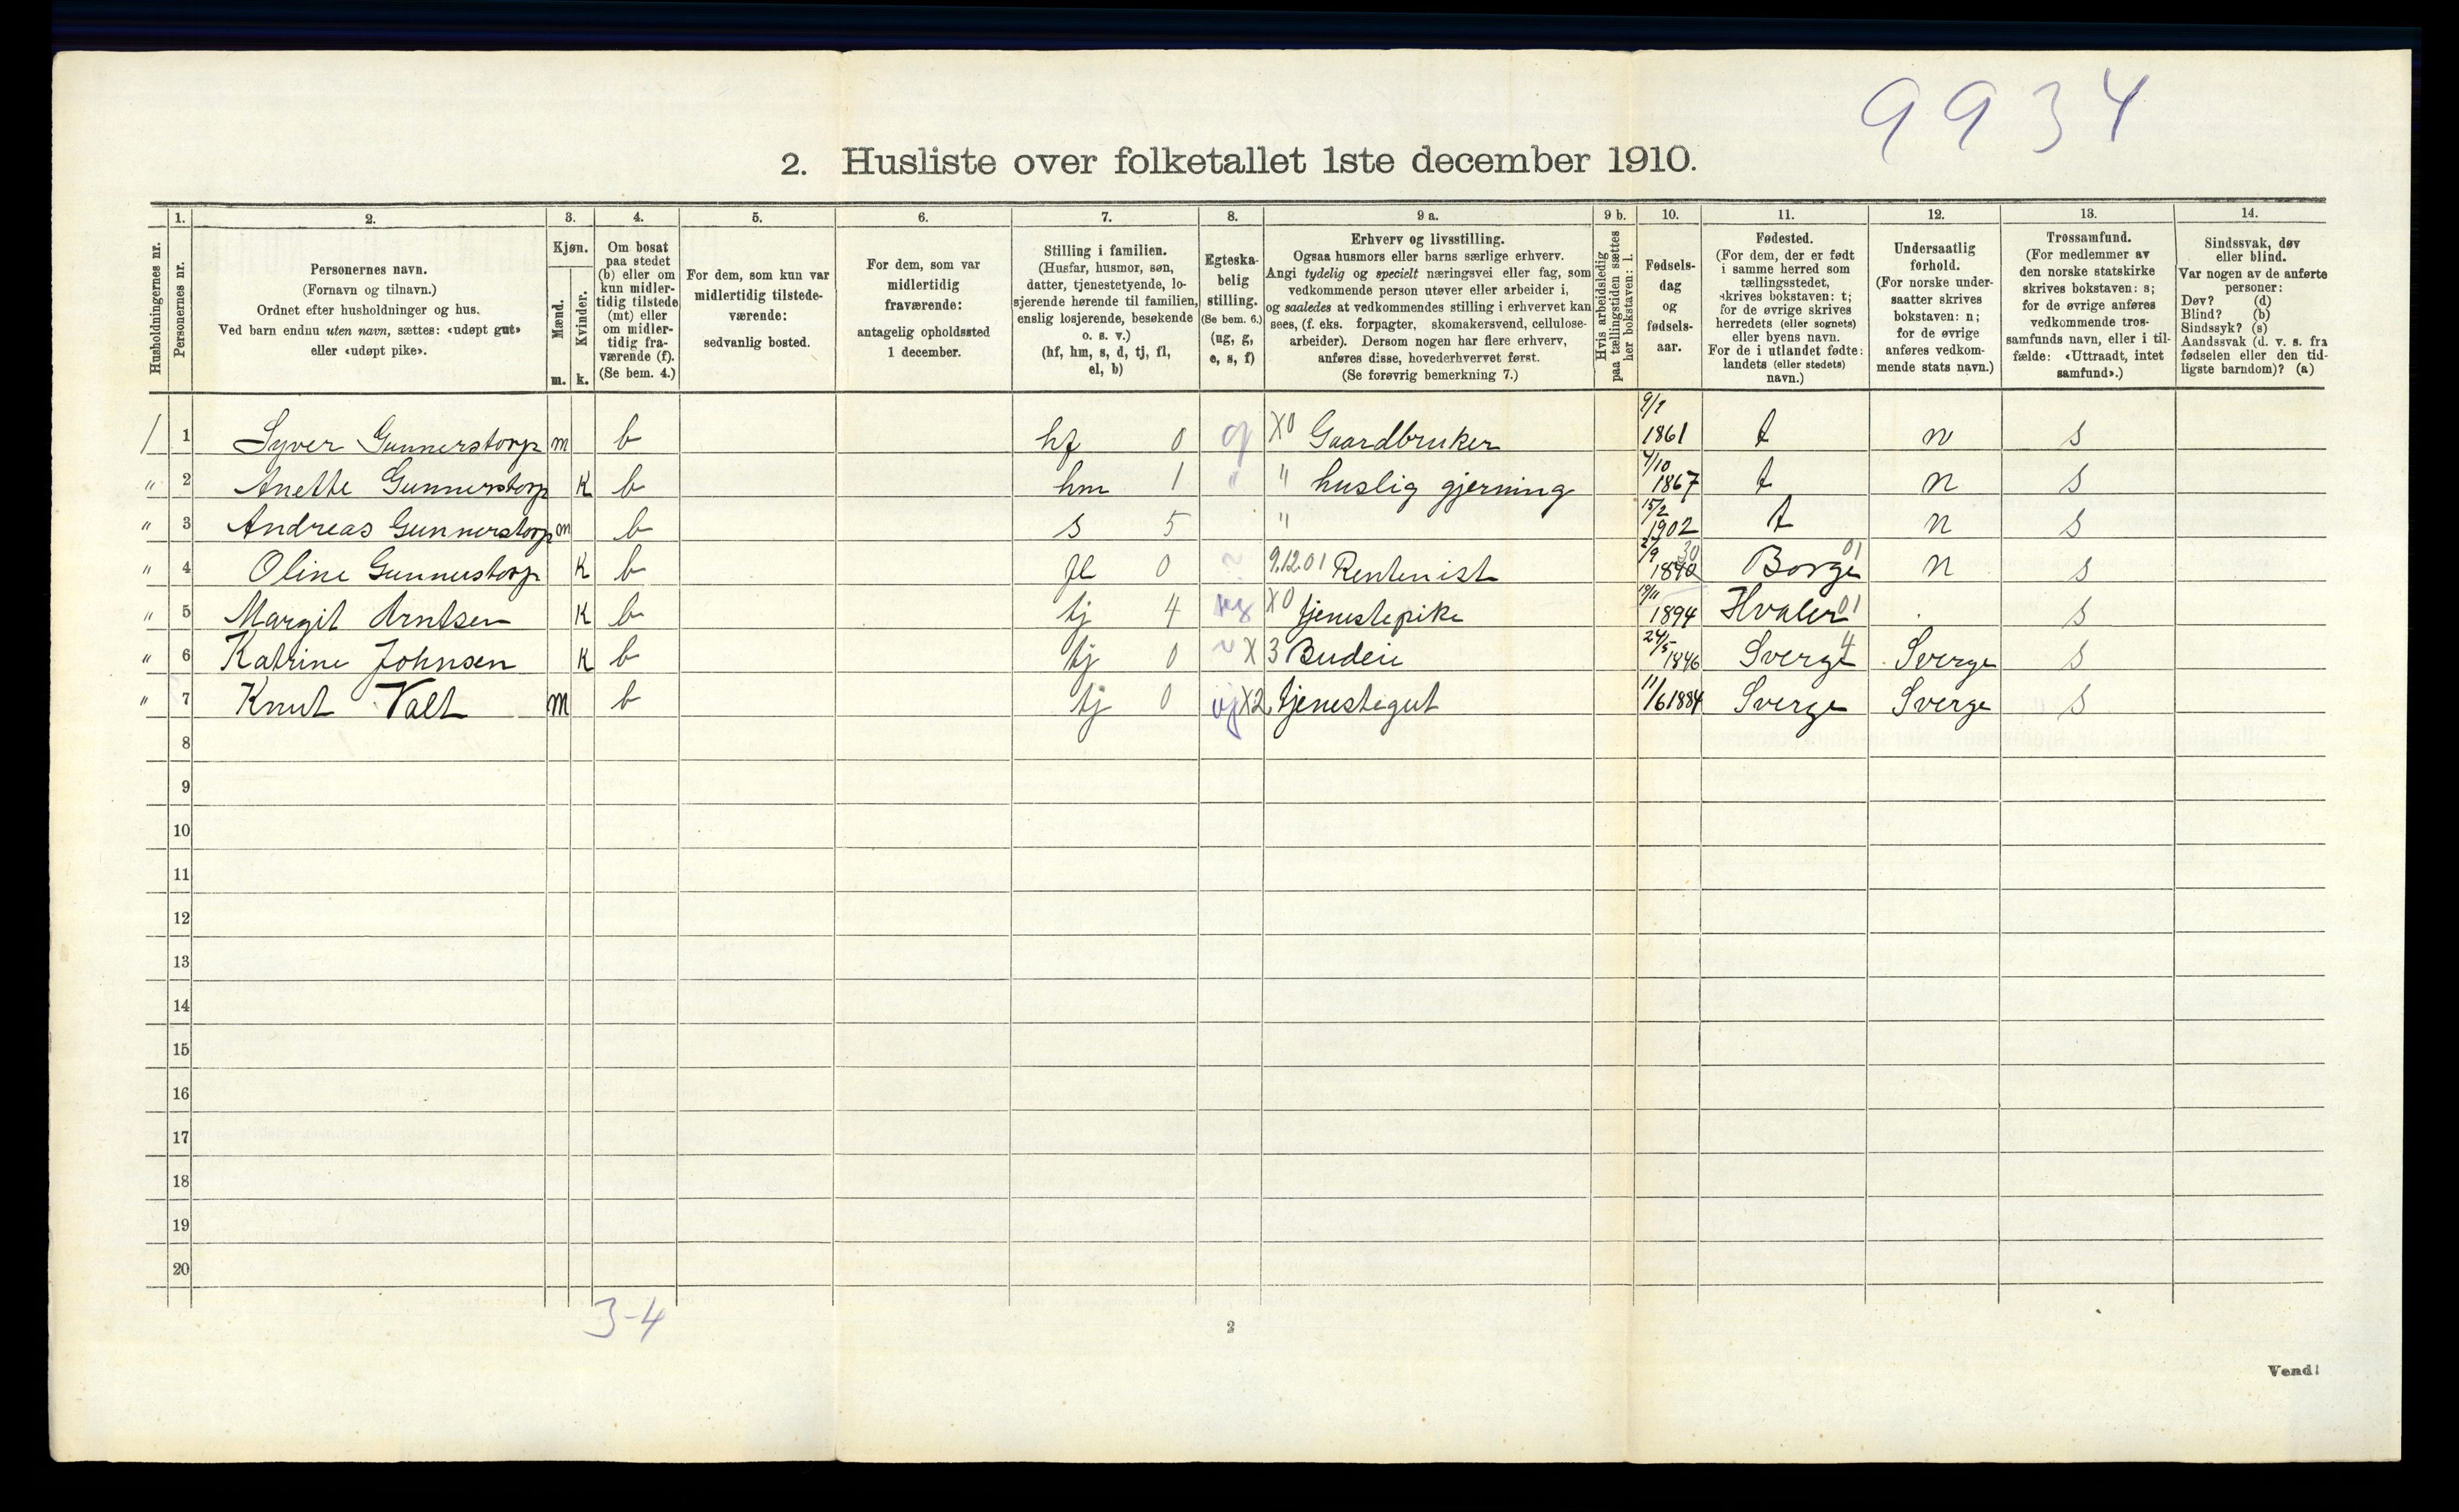 9934
2. Husliste over folketallet 1ste december 1910.
Husholdningernes nr.
1. Personernes nr.
2. Personernes navn.
(Fornavn og tilnavn.)
Ordnet efter husholdninger og hus.
Ved barn endnu uten navn, sættes: «udøpt gut»
eller «udøpt pike».
3. Kjøn.
Mænd. m.
Kvinder. k.
4. Om bosat
paa stedet
(b) eller om
kun midler-
tidig tilstede
(mt) eller
om midler-
tidig fra-
værende (f).
(Se bem. 4.)
5. For dem, som kun var
midlertidig tilstede-
værende:
sedvanlig bosted.
6. For dem, som var
midlertidig
fraværende:
antagelig opholdssted
1 december.
7. Stilling i familien.
(Husfar, husmor, søn,
datter, tjenestetyende, lo-
sjerende hørende til familien,
enslig losjerende, besøkende
o. s. v.)
(hf, hm, s, d, tj, fl,
el, b)
8. Egteska-
belig
stilling.
(Se bem. 6.)
(ug, g,
e, s, f)
9 a. Erhverv og livsstilling.
Ogsaa husmors eller barns særlige erhverv.
Angi tydelig og specielt næringsvei eller fag, som
vedkommende person utøver eller arbeider i,
og saaledes at vedkommendes stilling i erhvervet kan
sees, (f. eks. forpagter, skomakersvend, cellulose-
arbeider). Dersom nogen har flere erhverv,
anføres disse, hovederhvervet først.
(Se forøvrig bemerkning 7.)
9 b. Hvis arbeidsledig
paa tællingstiden sættes
her bokstaven: l.
10. Fødsels-
dag
og
fødsels-
aar.
11. Fødested.
(For dem, der er født
i samme herred som
tællingsstedet,
skrives bokstaven: t;
for de øvrige skrives
herredets (eller sognets)
eller byens navn.
For de i utlandet fødte:
landets (eller stedets)
navn.)
12. Undersaatlig
forhold.
(For norske under-
saatter skrives
bokstaven: n;
for de øvrige
anføres vedkom-
mende stats navn.)
13. Trossamfund.
(For medlemmer av
den norske statskirke
skrives bokstaven: s;
for de øvrige anføres
vedkommende tros-
samfunds navn, eller i til-
fælde: «Uttraadt, intet
samfund».)
14. Sindssvak, døv
eller blind.
Var nogen av de anførte
personer:
Døv? (d)
Blind? (b)
Sindssyk? (s)
Aandssvak (d. v. s. fra
fødselen eller den tid-
ligste barndom)? (a)
1 Syver Gunnerstorp m b hf 0 g X0 Gaardbruker 1861 t n s
" 2 Anette Gunnerstorp K b hm 1 " " huslig gjerning 1867 t n s
" 3 Andreas Gunnerstorp m b s 5 " 15/2 1902 t n s
" 4 Oline Gunnerstorp K b fl 0 9.12.01 Rentenist 1840 30 Borge 01 n s
" 5 Margit Arntsen K b tj 4 X0 tjenestepike 19/11 1894 Hvaler 01 s
" 6 Katrine Johnsen K b tj 0 X 3 Budeie 24/5 1846 Sverge 4 Sverge s
" 7 Knut Valt m b tj 0 X2 tjenestegut 11/6 1884 Sverge Sverge s
8
9
10
11
12
13
14
15
16
17
18
19
20
3-4
2
Vend!